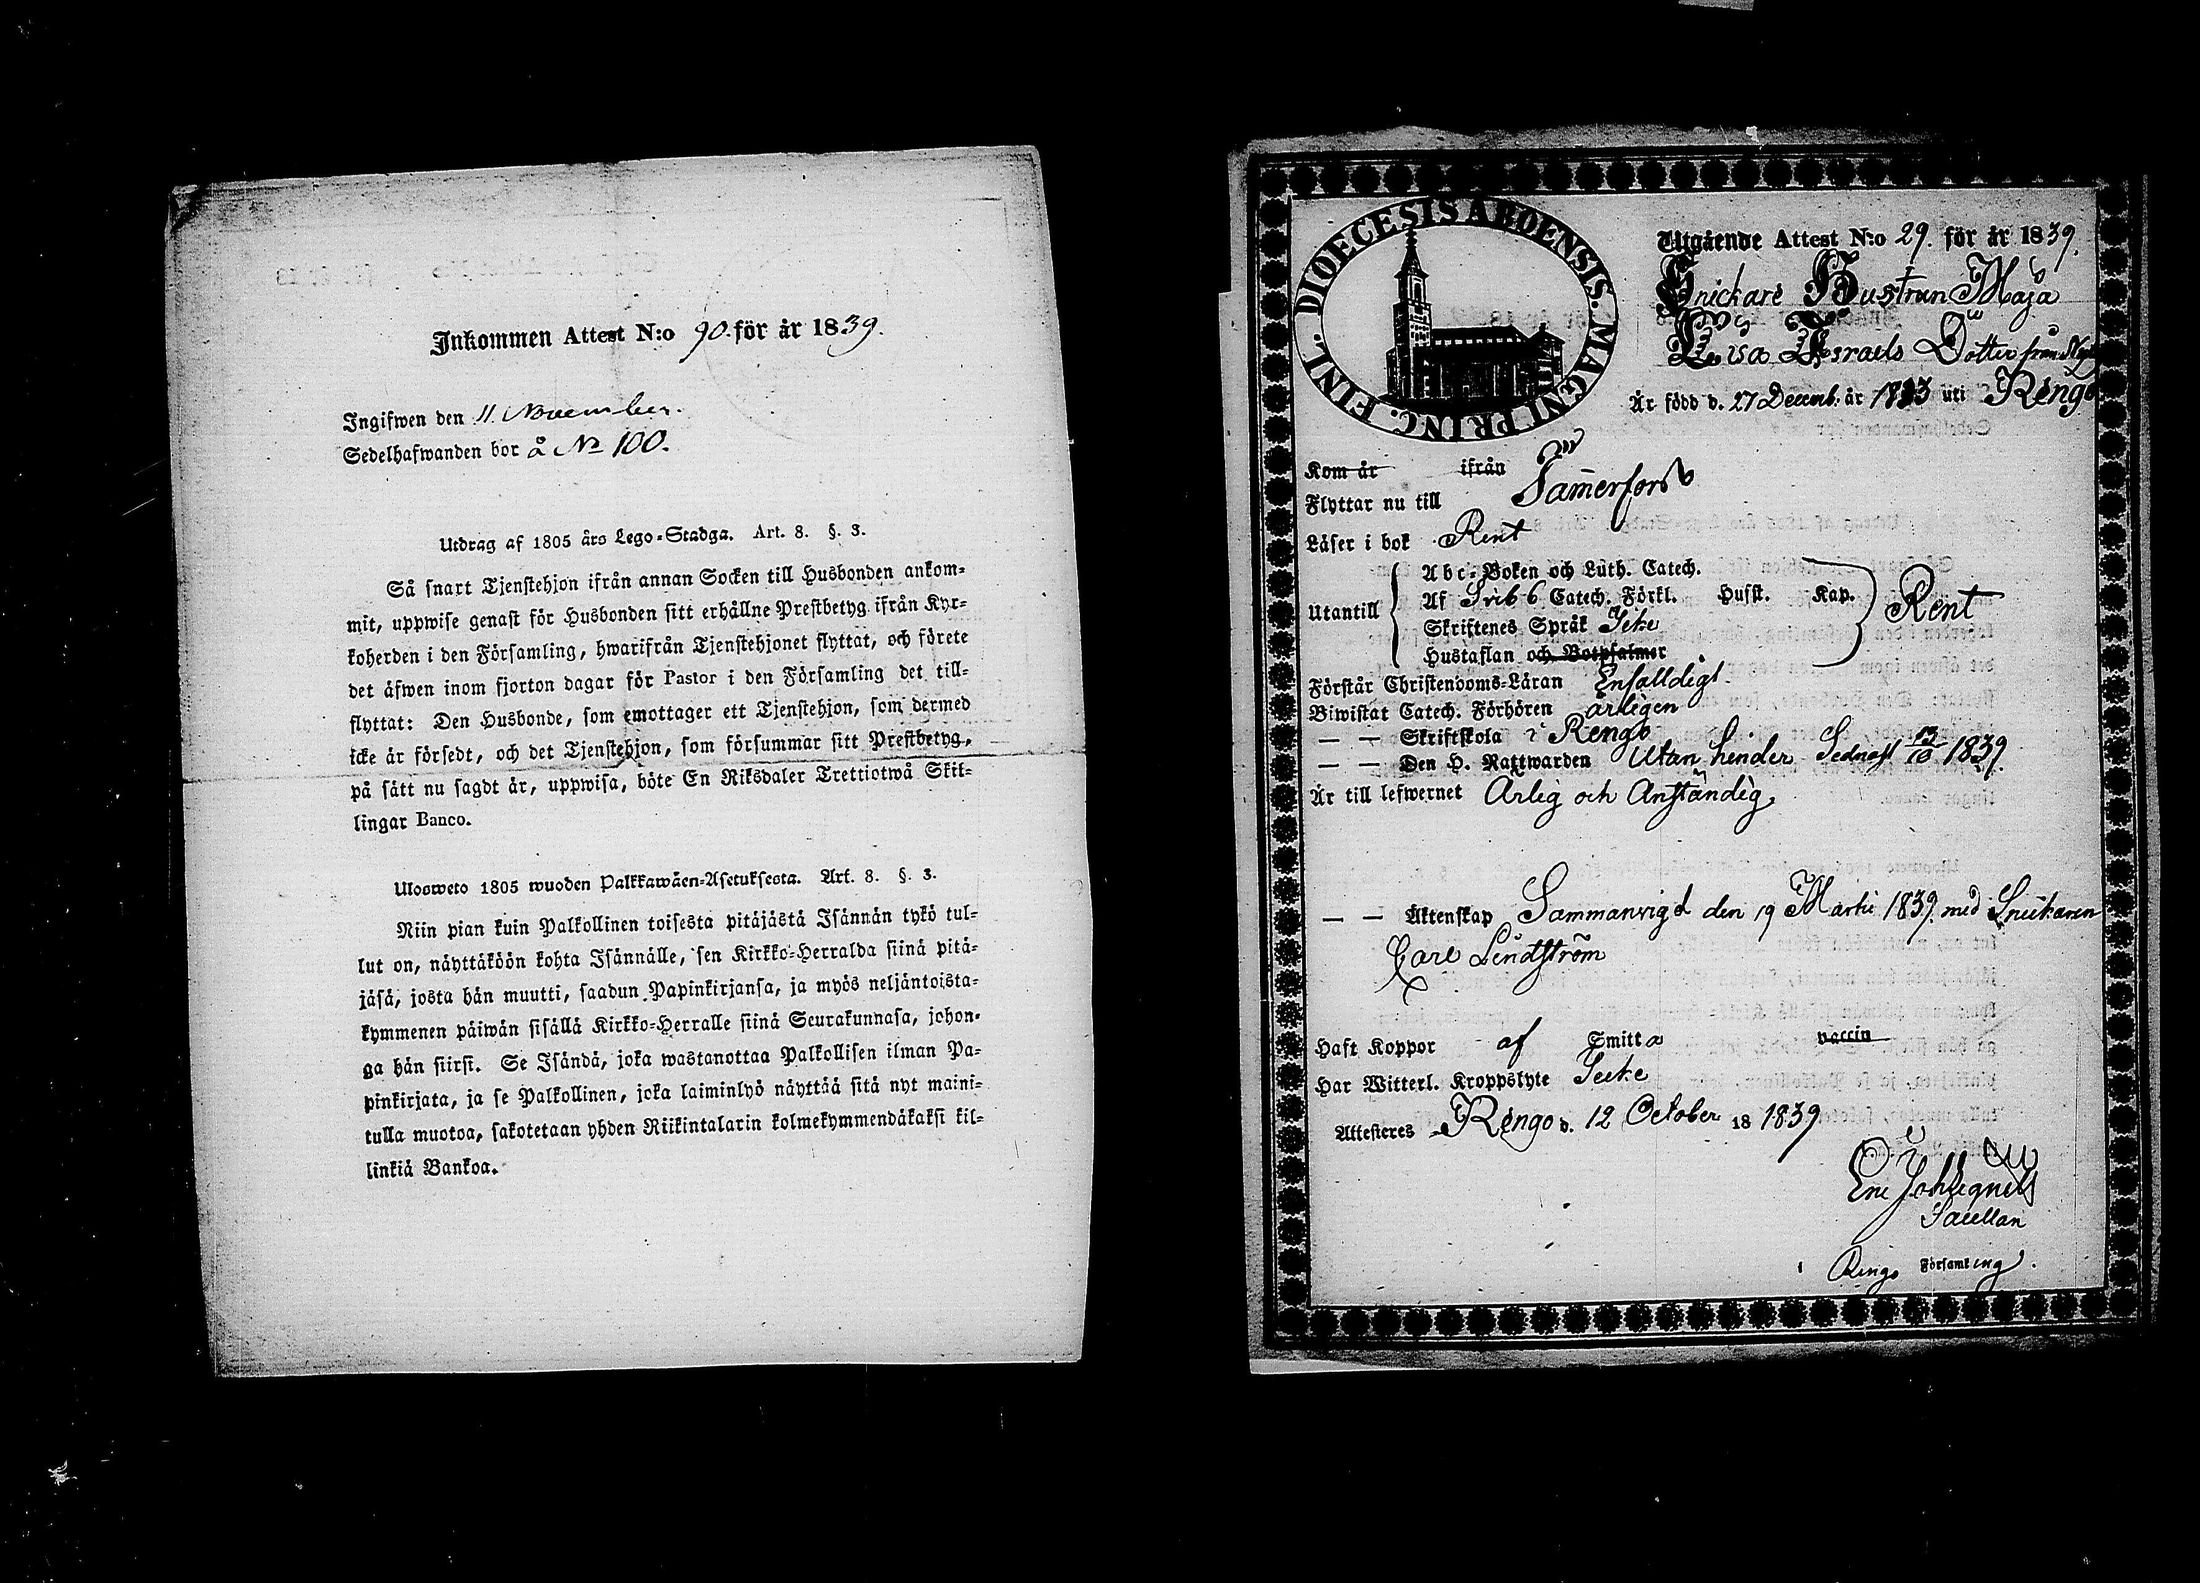 Inkommen Attest N:o 90. för år 1839.
Ingifwen den 11. November.
Sedelhafwanden bor å No 100.
Utdrag af 1805 års Lego-Stadga. Art. 8. §. 3.
Så snart Tjenstehjon ifrån annan Socken till Husbonden ankom-
mit, uppwise genast för Husbonden sitt erhållne Prestbetyg ifrån Kyr-
koherden i den Församling, hwarifrån Tjenstehjonet flyttat, och förete
det äfwen inom fjorton dagar för Pastor i den Församling det till-
flyttat: Den Husbonde, som emottager ett Tjenstehjon, som dermed
icke är försedt, och det Tjenstehjon, som försummar sitt Prestbetyg,
på sätt nu sagdt är, uppwisa, böte En Riksdaler Trettiotwå Skil-
lingar Banco.
Ulosweto 1805 wuoden Palkkawäen-Asetuksesta. Art. 8. §. 3.
Niin pian kuin Palkollinen toisesta pitäjästä Isännän tykö tul-
lut on, näyttäköön kohta Isännälle, sen Kirkko-Herralda siinä pitä-
jäsä, josta hän muutti, saadun Papinkirjansa, ja myös neljäntoista-
kymmenen päiwän sisällä Kirkko-Herralle siinä Seurakunnasa, johon-
ga hän siirsi. Se Isändä, joka wastanottaa Palkollisen ilman Pa-
pinkirjata, ja se Palkollinen, joka laiminlyö näyttää sitä nyt maini-
tulla muotoa, sakotetaan yhden Riikintalarin kolmekymmendäkaksi kil-
linkiä Bankoa.
DIOECESIS ABOENSIS. MAGNI PRINC. FINL.
Utgående Attest N:o 29. för år 1839.
Snickare Hustrun Maja
Lisa Israels Dotter från
Är född d. 27 Decemb. år 1813 uti Rengo
Kom år ifrån
Flyttar nu till Tamerfors
Läser i bok Rent
Utantill Abc-Boken och Luth. Catech.
Af Svib 6 Catech. Förkl. Husst. Kap. Rent
Skriftenes Språk Icke
Hustaflan och Botpsalmer
Förstår Christendoms-Läran Enfaldigt
Biwistat Catech. Förhören årligen
— — Skriftskola i Rengo
— — Den H. Nattwarden Utan hinder Sednast 13/10 1839
Är till lefwernet Ärlig och Anständig,
— — Äktenskap Sammanvigd den 19 Martii 1839. med Snickaren
Carl Lindström
Haft Koppor af Smitta vaccin
Har Witterl. Kroppslyte Icke
Attesteres Rengo d. 12 October 18 1839
Sacellan
i Rengo Församling.